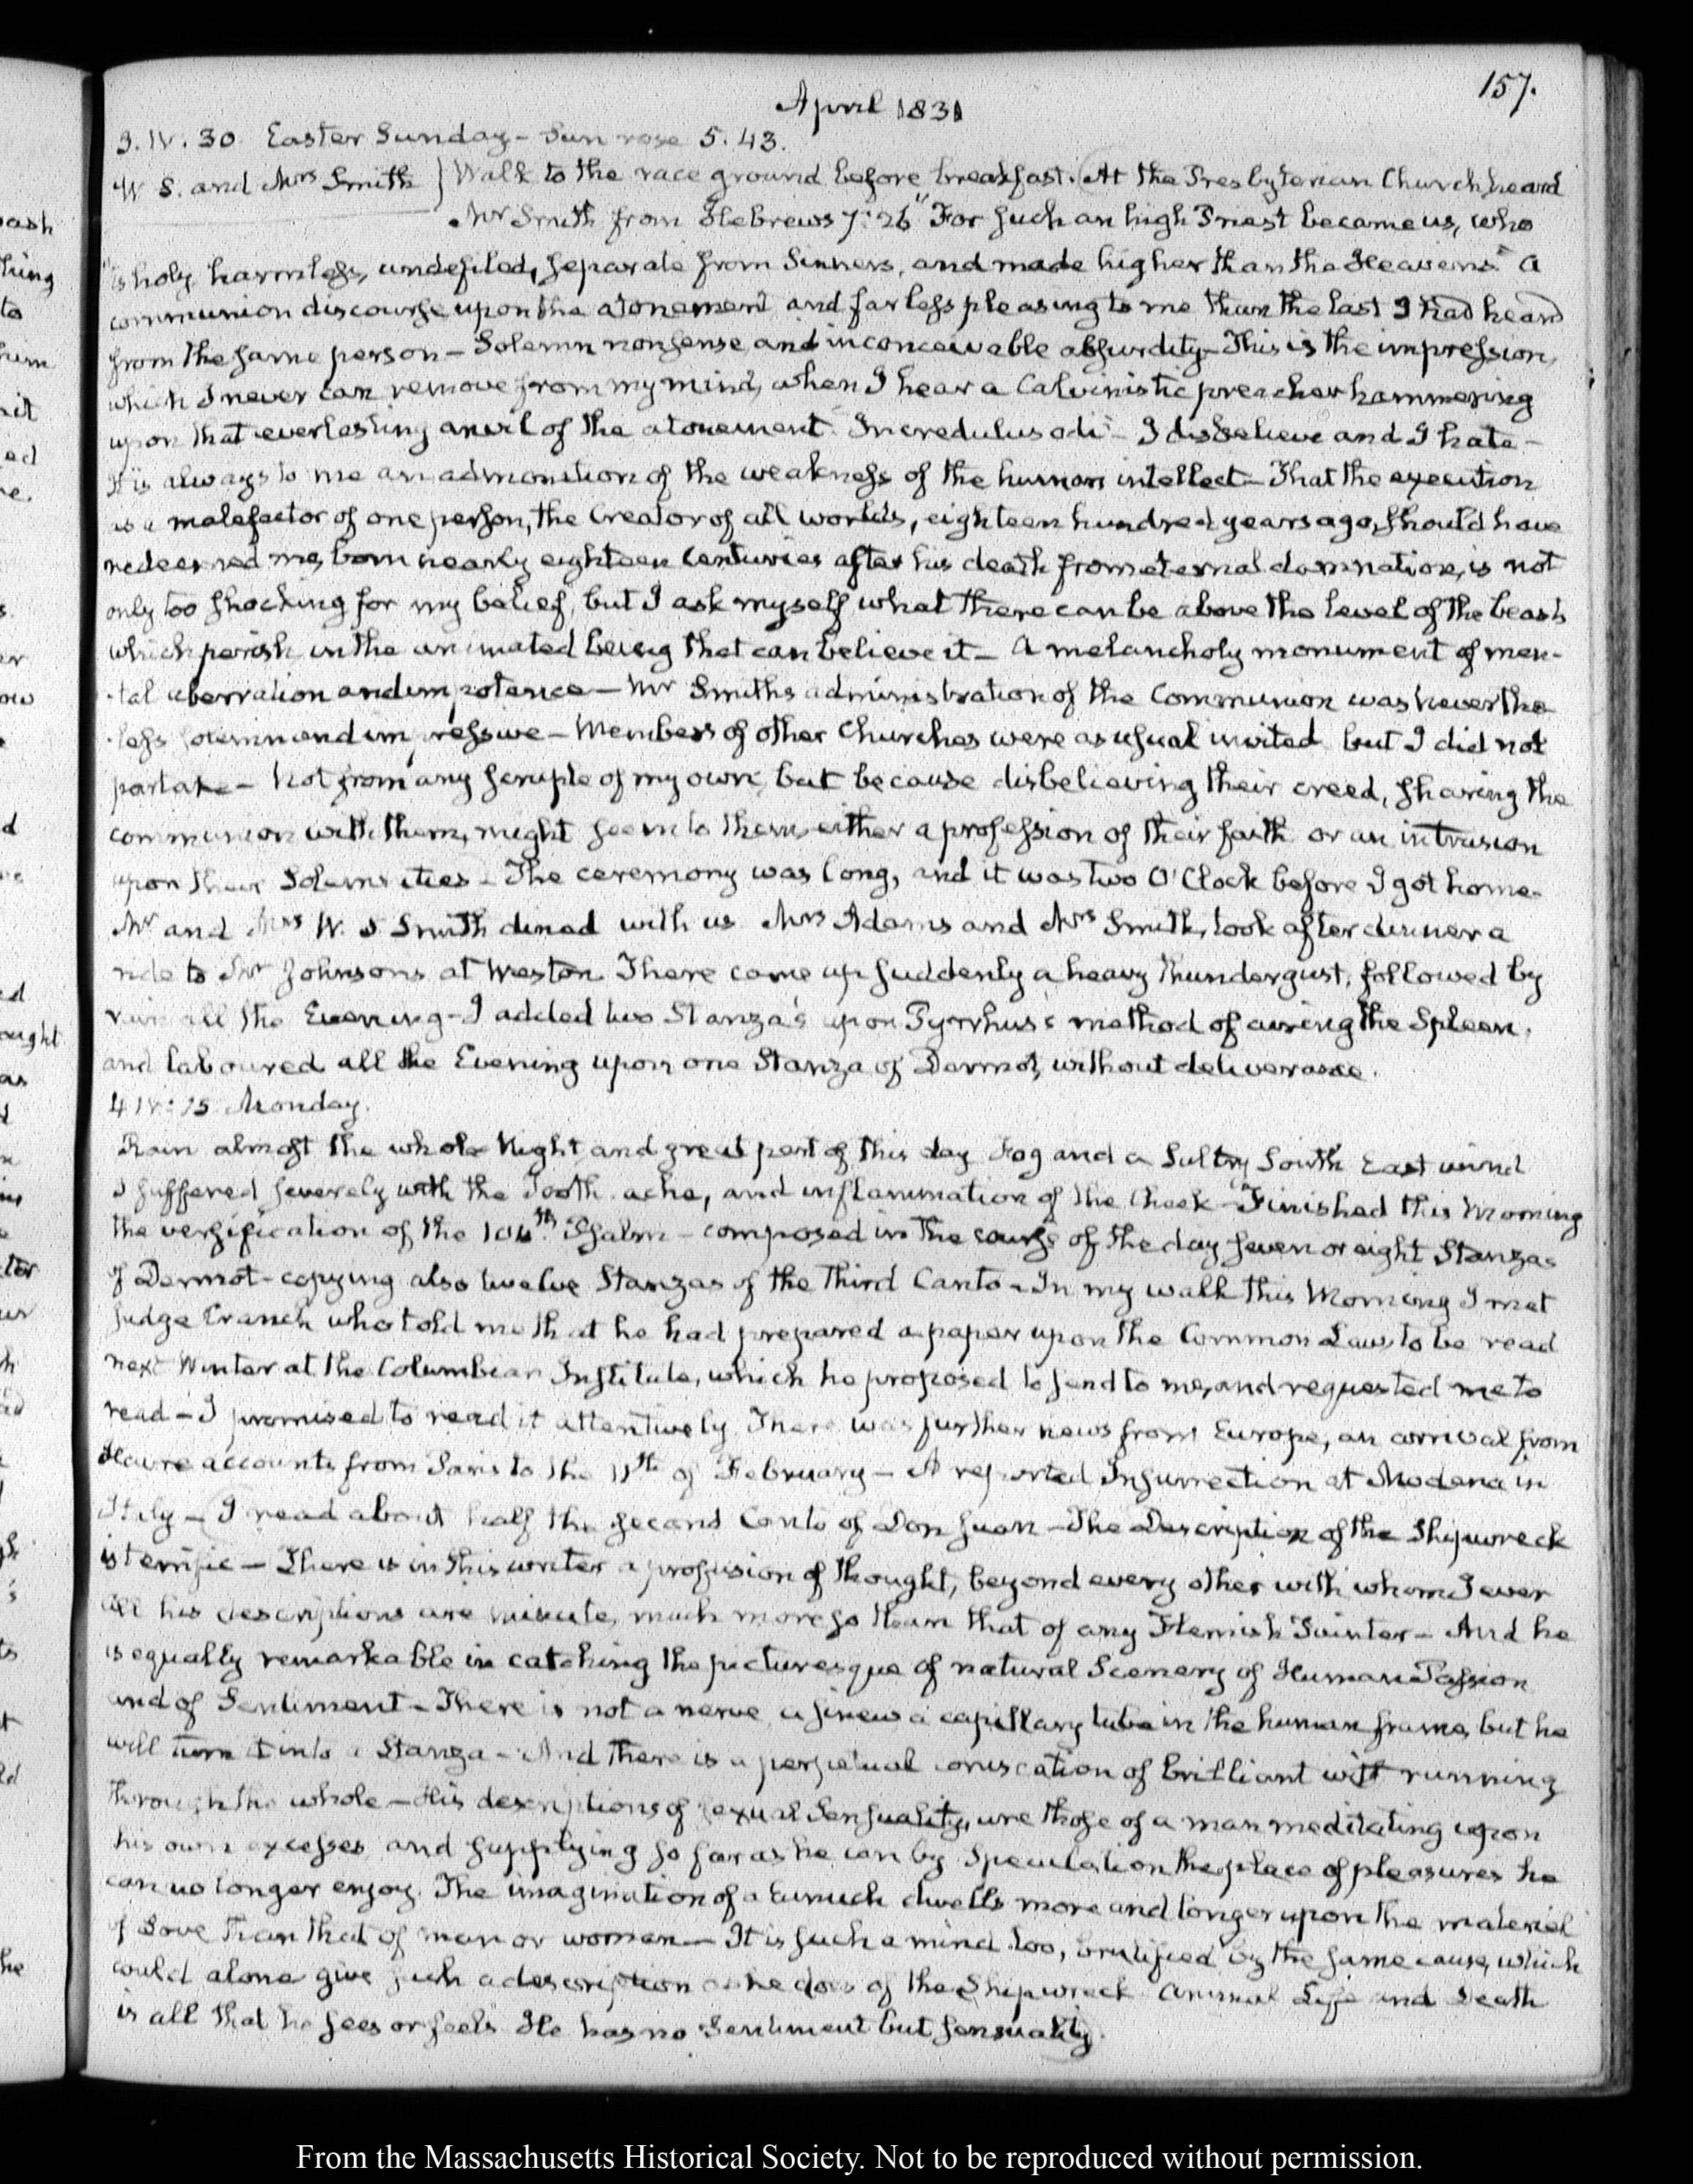 157.
April 1831
3. IV. 30. Easter Sunday – Sun rose 5.43.
W S. and Mrs Smith } Walk to the race ground before breakfast. At the Presbyterian Church, heard
Mr Smith from Hebrews 7:26 "For such an high Priest became us, who
is holy, harmless, undefiled, separate from Sinners, and made higher than the Heavens" A
communion discourse upon the atonement and far less pleasing to me than the last I had heard
from the same person – Solemn nonsense and inconceivable absurdity – This is the impression,
which I never can remove from my mind, when I hear a Calvinistic preacher hammering
upon that everlasting anvil of the atonement. Incredulus odi – I disbelieve and I hate –
It is always to me an admonition of the weakness of the human intellect – That the execution
as a malefactor of one person, the Creator of all worlds, eighteen hundred years ago, should have
redeemed me, born nearly eighteen Centuries after his death from eternal damnation, is not
only too shocking for my belief, but I ask myself what there can be above the level of the beasts
which perish, in the animated being that can believe it – A melancholy monument of men-
-tal aberration and impotence – Mr Smith's administration of the Communion was neverthe
-less solemn and impressive – Members of other Churches were as usual invited but I did not
partake – Not from any scruple of my own, but because disbelieving their creed, sharing the
communion with them, might seem to them either a profession of their faith or an intrusion
upon their Solemnities – The ceremony was long, and it was two O'Clock before I got home.
Mr and Mrs W. S. Smith dined with us. Mrs Adams and Mrs Smith, took after dinner a
ride to Mr Johnsons at Weston. There came up suddenly a heavy thundergust, followed by
rain all the Evening – I added two Stanza's upon Pyrrhus's method of curing the Spleen,
and laboured all the Evening upon one Stanza of Dermot, without deliverance.
4. IV: 15. Monday.
Rain almost the whole Night and great part of this day Fog and a Sultry South East wind
I suffered severely with the Tooth ache, and inflammation of the Cheek – Finished this Morning
the versification of the 104th Psalm – composed in the course of the day seven or eight Stanzas
of Dermot – copying also twelve Stanzas of the Third Canto – In my walk this Morning I met
Judge Cranch who told me that he had prepared a paper upon the Common Law, to be read
next Winter at the Columbian Institute, which he proposed to send to me, and requested me to
read – I promised to read it attentively. There was further news from Europe, an arrival from
Havre accounts from Paris to the 11th of February – A reported Insurrection at Modena in
Italy – I read about half the second Canto of Don Juan – The Description of the Shipwreck
is terrific – There is in this writer a profusion of thought, beyond every other with whom I ever
All his descriptions are minute, much more so than that of any Flemish Painter – And he
is equally remarkable in catching the picturesque of natural Scenery of Human Passion
and of Sentiment – There is not a nerve a sinew a capillary tube in the human frame, but he
will turn it into a Stanza – And there is a perpetual coruscation of brilliant wit running
through the whole – His descriptions of sexual Sensuality, are those of a man meditating upon
his own excesses and supplying so far as he can by Speculation the place of pleasures he
can no longer enjoy. The imagination of a Eunuch dwells more and longer upon the material
of Love than that of man or woman – It is such a mind too, brutified by the same cause, which
could alone give such a description as he does of the Shipwreck. Animal Life and Death
is all that he sees or feels. He has no Sentiment but sensuality.
From the Massachusetts Historical Society. Not to be reproduced without permission.